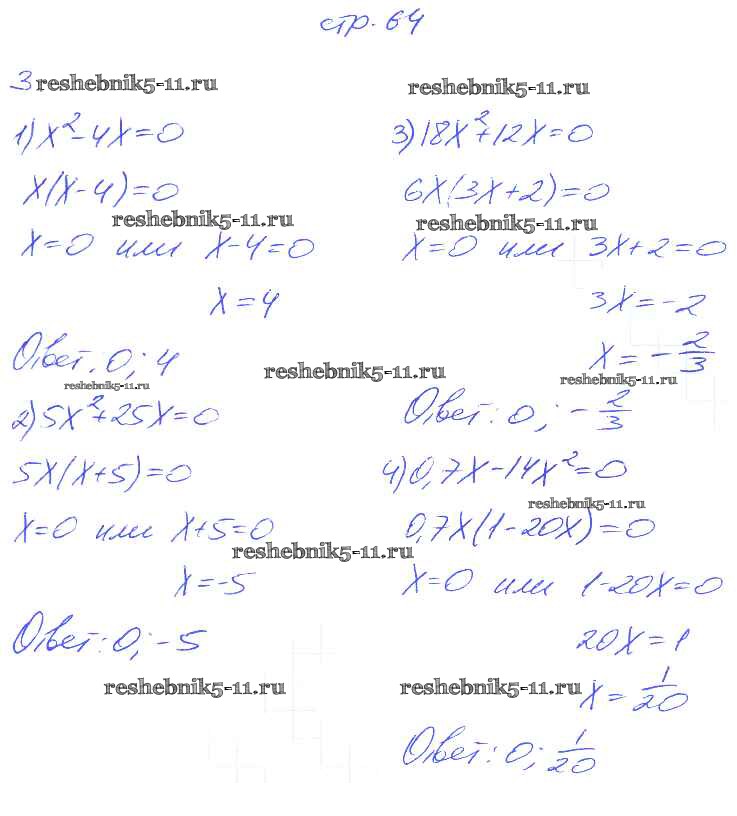 стр. 64
3 reshebnik5-11.ru
1) x² - 4x = 0
x(x-4) = 0
reshebnik5-11.ru
x=0 или x-4=0
x = 4
Ответ. 0; 4
reshebnik5-11.ru
reshebnik5-11.ru
2) 5x² + 25x = 0
5x(x+5) = 0
x=0 или x+5=0
reshebnik5-11.ru
x=-5
Ответ: 0; -5
reshebnik5-11.ru
reshebnik5-11.ru
3) 18x² + 12x = 0
6x(3x+2) = 0
reshebnik5-11.ru
x=0 или 3x+2=0
3x = -2
x = -2/3
reshebnik5-11.ru
Ответ: 0; -2/3
4) 0,7x - 14x² = 0
reshebnik5-11.ru
0,7x(1-20x) = 0
x=0 или 1-20x=0
20x = 1
reshebnik5-11.ru x = 1/20
Ответ: 0; 1/20